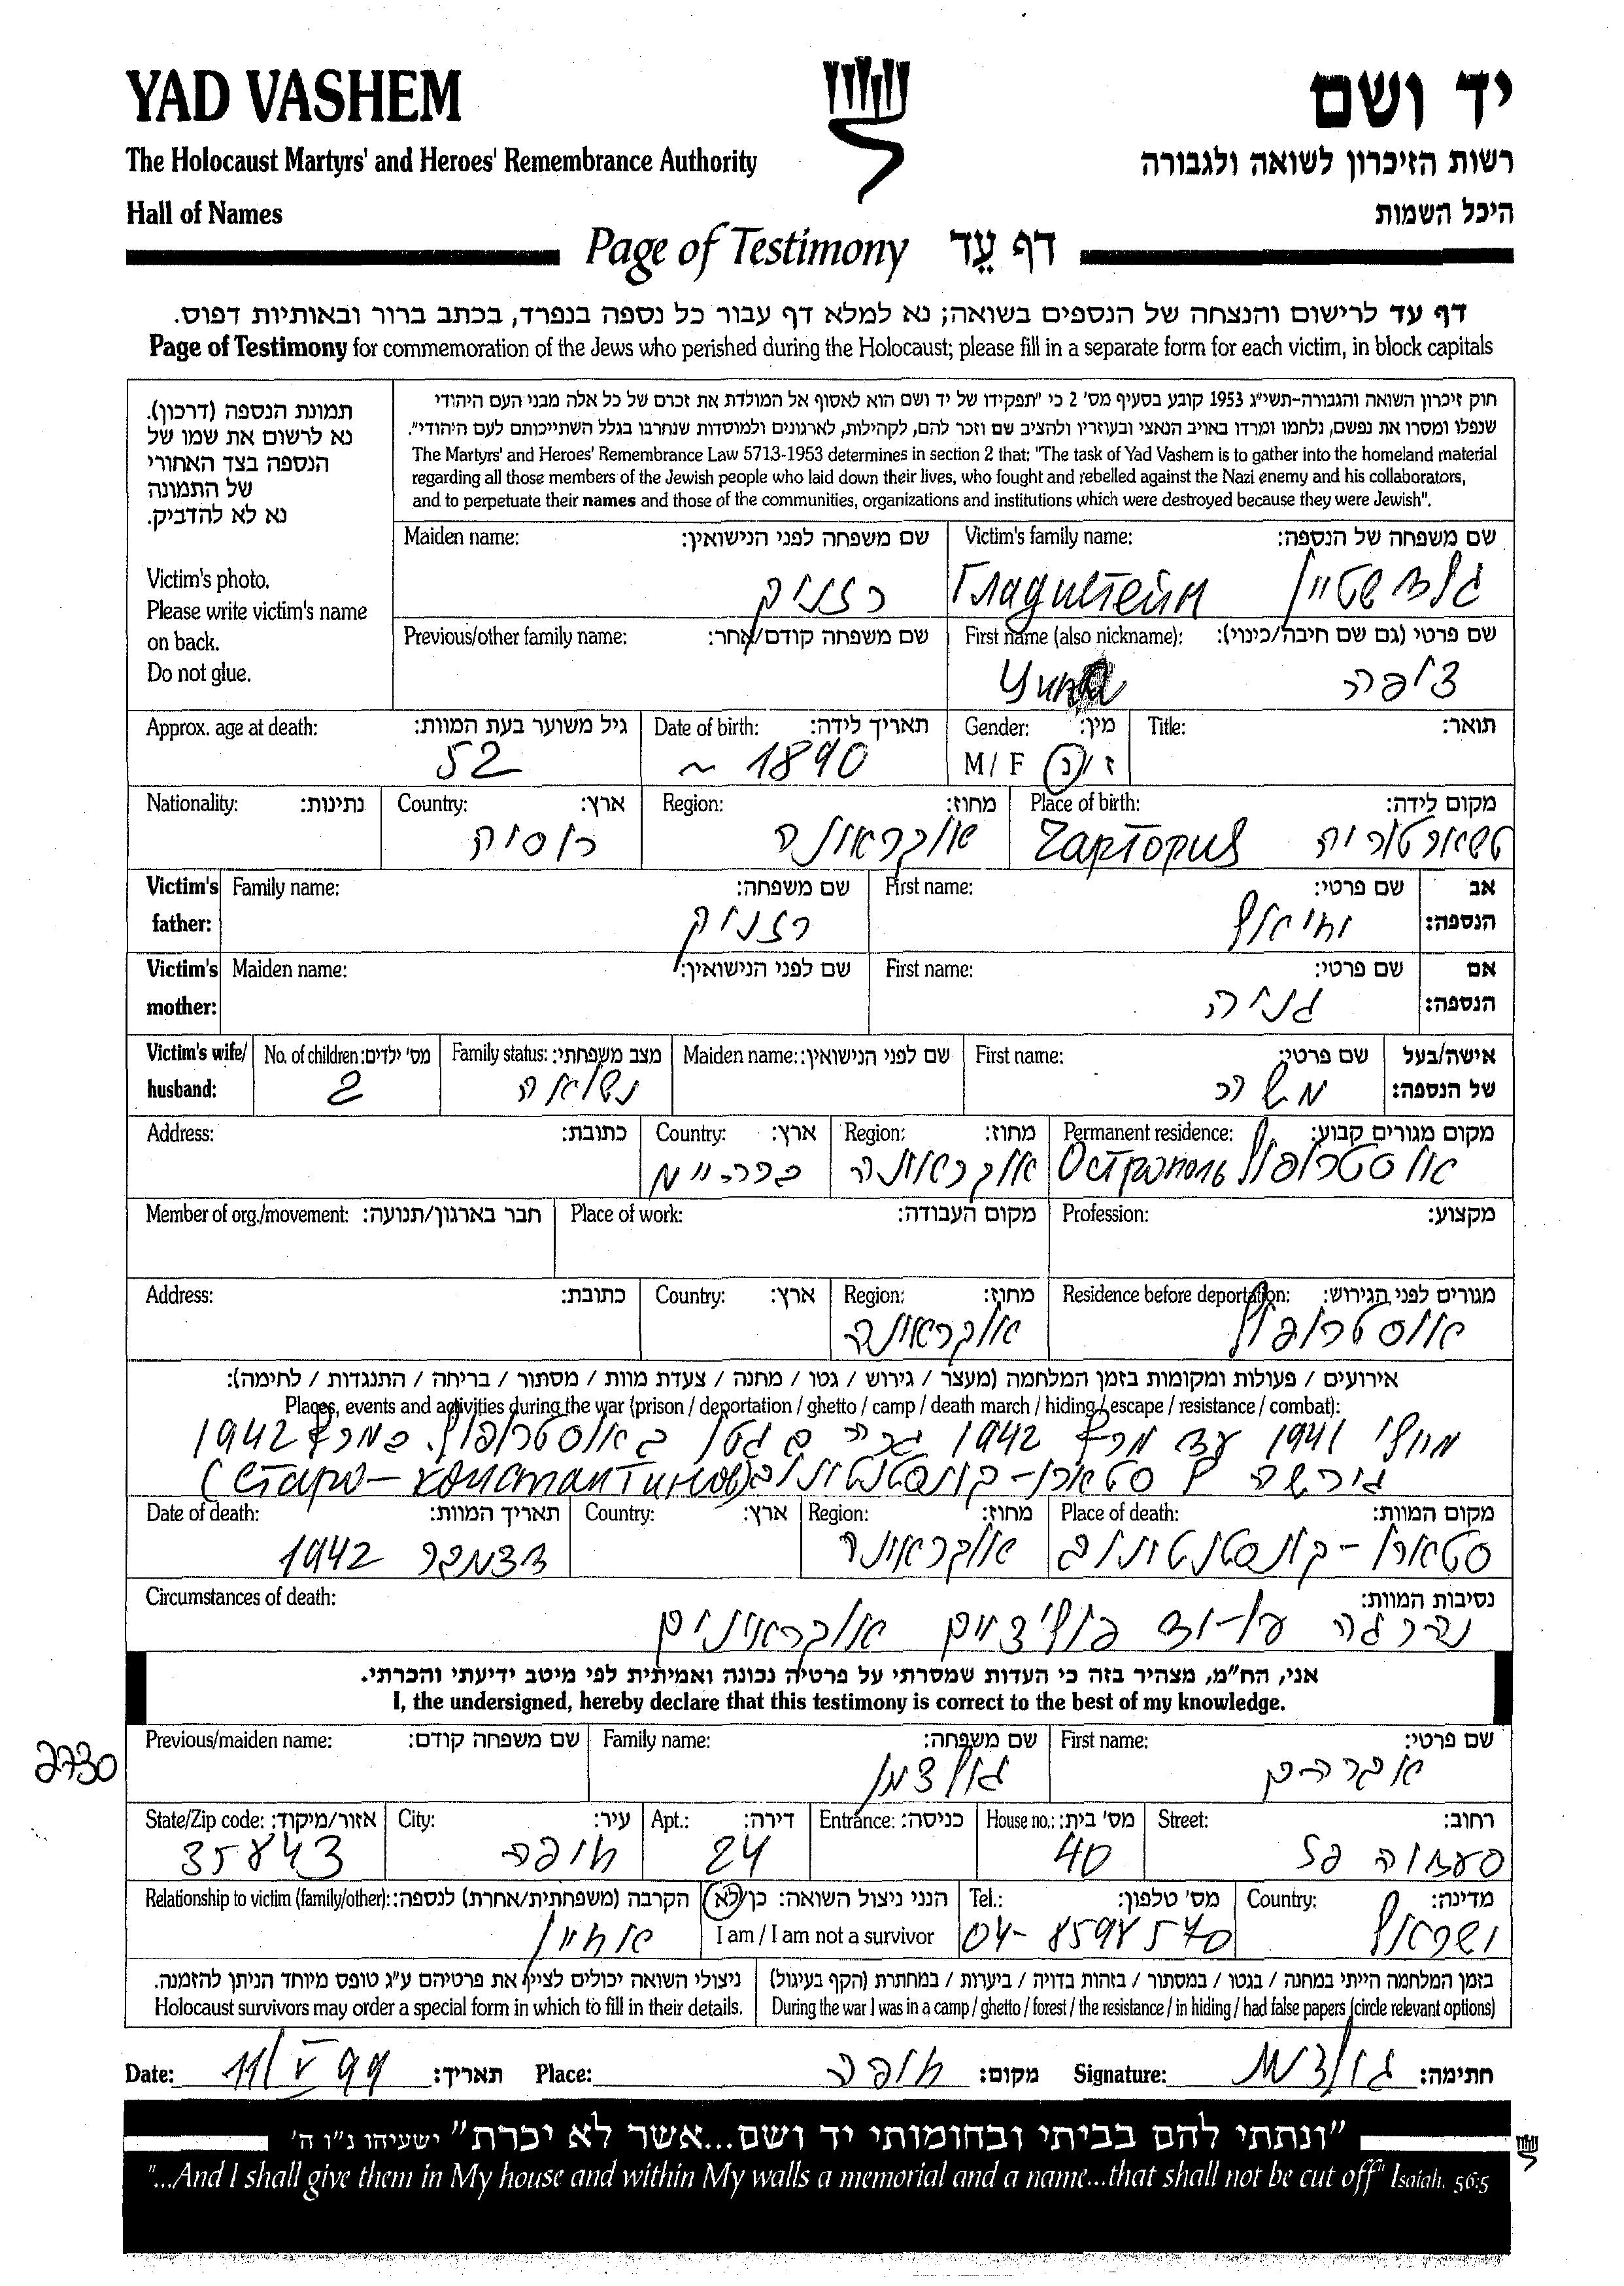 YAD VASHEM יד ושם
The Holocaust Martyrs' and Heroes' Remembrance Authority רשות הזיכרון לשואה ולגבורה
Hall of Names היכל השמות
Page of Testimony דף עֵד
דף עד לרישום והנצחה של הנספים בשואה; נא למלא דף עבור כל נספה בנפרד, בכתב ברור ובאותיות דפוס.
Page of Testimony for commemoration of the Jews who perished during the Holocaust; please fill in a separate form for each victim, in block capitals
תמונת הנספה (דרכון).
נא לרשום את שמו של
הנספה בצד האחורי
של התמונה
נא לא להדביק.
Victim's photo.
Please write victim's name
on back.
Do not glue.
חוק זיכרון השואה והגבורה-תשי"ג 1953 קובע בסעיף מס' 2 כי "תפקידו של יד ושם הוא לאסוף אל המולדת את זכרם של כל אלה מבני העם היהודי
שנפלו ומסרו את נפשם, נלחמו ומרדו באויב הנאצי ובעוזריו ולהציב שם וזכר להם, לקהילות, לארגונים ולמוסדות שנחרבו בגלל השתייכותם לעם היהודי".
The Martyrs' and Heroes' Remembrance Law 5713-1953 determines in section 2 that: "The task of Yad Vashem is to gather into the homeland material
regarding all those members of the Jewish people who laid down their lives, who fought and rebelled against the Nazi enemy and his collaborators,
and to perpetuate their names and those of the communities, organizations and institutions which were destroyed because they were Jewish".
Maiden name: שם משפחה לפני הנישואין: Victim's family name: שם משפחה של הנספה:
רזניק Гладштейн גלדשטיין
Previous/other family name: שם משפחה קודם/אחר: First name (also nickname): שם פרטי (גם שם חיבה/כינוי):
ציפה
Approx. age at death: גיל משוער בעת המוות: Date of birth: תאריך לידה: Gender: מין: Title: תואר:
52 ~ 1890 M / F ז / נ
Nationality: נתינות: Country: ארץ: Region: מחוז: Place of birth: מקום לידה:
רוסיה אוקראינה Чартория טשארטוריה
Victim's father: Family name: שם משפחה: First name: שם פרטי: אב הנספה:
רזניק יחיאל
Victim's mother: Maiden name: שם לפני הנישואין: First name: שם פרטי: אם הנספה:
גניה
Victim's wife/ husband: No. of children: מס' ילדים: Family status: מצב משפחתי: Maiden name: שם לפני הנישואין: First name: שם פרטי: אישה/בעל של הנספה:
2 נשואה
Address: כתובת: Country: ארץ: Region: מחוז: Permanent residence: מקום מגורים קבוע:
ברה"מ אוקראינה Острополь אוסטרופול
Member of org./movement: חבר בארגון/תנועה: Place of work: מקום העבודה: Profession: מקצוע:
Address: כתובת: Country: ארץ: Region: מחוז: Residence before deportation: מגורים לפני הגירוש:
אוקראינה אוסטרופול
אירועים / פעולות ומקומות בזמן המלחמה (מעצר / גירוש / גטו / מחנה / צעדת מוות / מסתור / בריחה / התנגדות / לחימה):
Places, events and activities during the war (prison / deportation / ghetto / camp / death march / hiding / escape / resistance / combat):
מיולי 1941 עד מרץ 1942 גרה בגטו באוסטרופול. במרץ 1942
גורשה לסטארו-קונסטנטינוב (Старо-константинов)
Date of death: תאריך המוות: Country: ארץ: Region: מחוז: Place of death: מקום המוות:
דצמבר 1942 אוקראינה סטארו-קונסטנטינוב
Circumstances of death: נסיבות המוות:
נהרגה על-יד פוליצאים אוקראינים
אני, הח"מ, מצהיר בזה כי העדות שמסרתי על פרטיה נכונה ואמיתית לפי מיטב ידיעתי והכרתי.
I, the undersigned, hereby declare that this testimony is correct to the best of my knowledge.
2730
Previous/maiden name: שם משפחה קודם: Family name: שם משפחה: First name: שם פרטי:
גולצמן אברהם
State/Zip code: אזור/מיקוד: City: עיר: Apt.: דירה: Entrance: כניסה: House no.: מס' בית: Street: רחוב:
35843 חיפה 24 40
Relationship to victim (family/other): הקרבה (משפחתית/אחרת) לנספה: הנני ניצול השואה: כן/לא Tel.: מס' טלפון: Country: מדינה:
אחיין I am / I am not a survivor 04- 8598570 ישראל
ניצולי השואה יכולים לציין את פרטיהם ע"ג טופס מיוחד הניתן להזמנה. בזמן המלחמה הייתי במחנה / בגטו / במסתור / בזהות בדויה / ביערות / במחתרת (הקף בעיגול)
Holocaust survivors may order a special form in which to fill in their details. During the war I was in a camp / ghetto / forest / the resistance / in hiding / had false papers (circle relevant options)
Date: 11/V 99 תאריך: Place: חיפה מקום: Signature: גולצמן חתימה:
"ונתתי להם בביתי ובחומותי יד ושם...אשר לא יכרת" ישעיהו נ"ו ה'
"...And I shall give them in My house and within My walls a memorial and a name...that shall not be cut off" Isaiah. 56:5